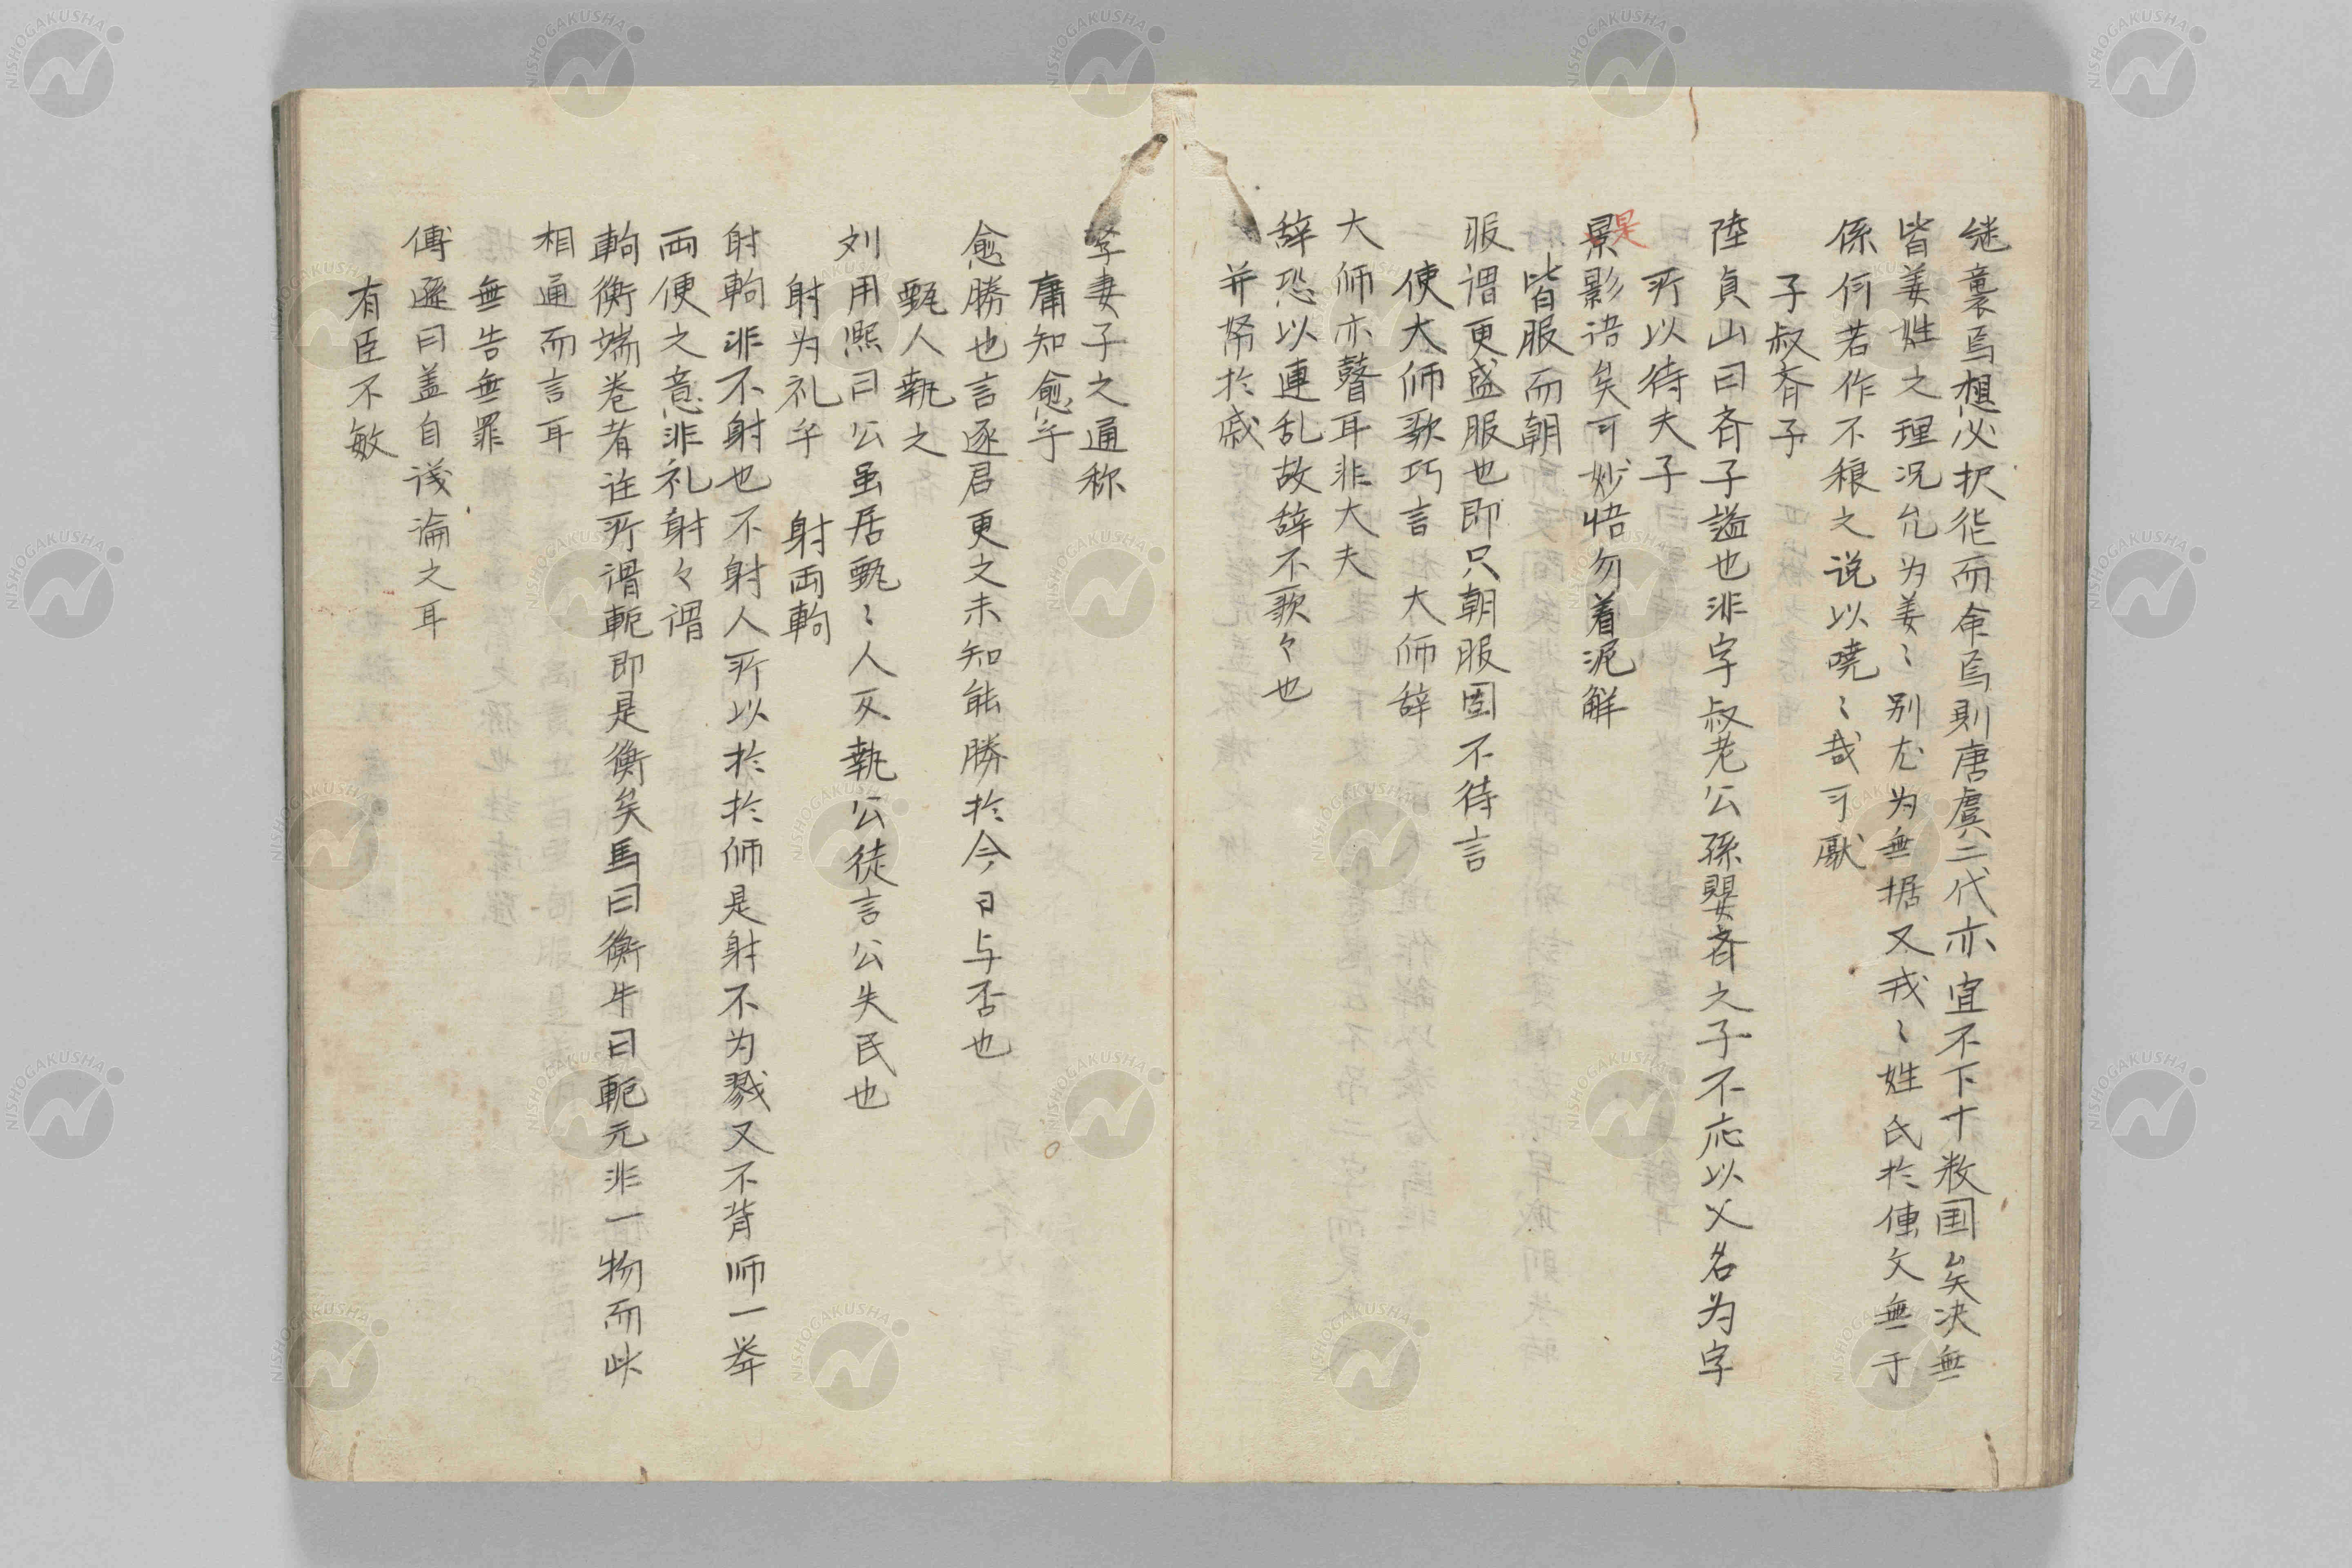 継裏焉想必択能而命焉則唐虞二代亦宜不下十数国矣決無
皆姜姓之理况允为姜〻别尤为無据又戎〻姓氏於傳文無于
係何若作不稂之说以曉〻哉可厭
子叔斉子
陸貞山曰斉子謚也非字叔老公孫嬰斉之子不応以父名为字
所以待夫子
是
景影语矣可妙悟勿着泥解
皆服而朝
服谓更盛服也即只朝服固不待言
使大师歌巧言 大师辞
大师亦瞽耳非大夫
辞恐以連乱故辞不歌々也
并帑於戚
孥妻子之通称
庸知愈乎
愈勝也言逐君更之未知能勝於今日与否也
甄人執之
刘用熙曰公虽居甄〻人反執公徒言公失民也
射为礼乎 射両軥
射軥非不射也不射人所以於於师是射不为戮又不背师一挙
両便之意非礼射々谓
軥衡端卷者注所谓軛即是衡矣馬曰衡牛曰軛元非一物而此
相通而言耳
無告無罪
傅遜曰盖自浅淪之耳
有臣不敏